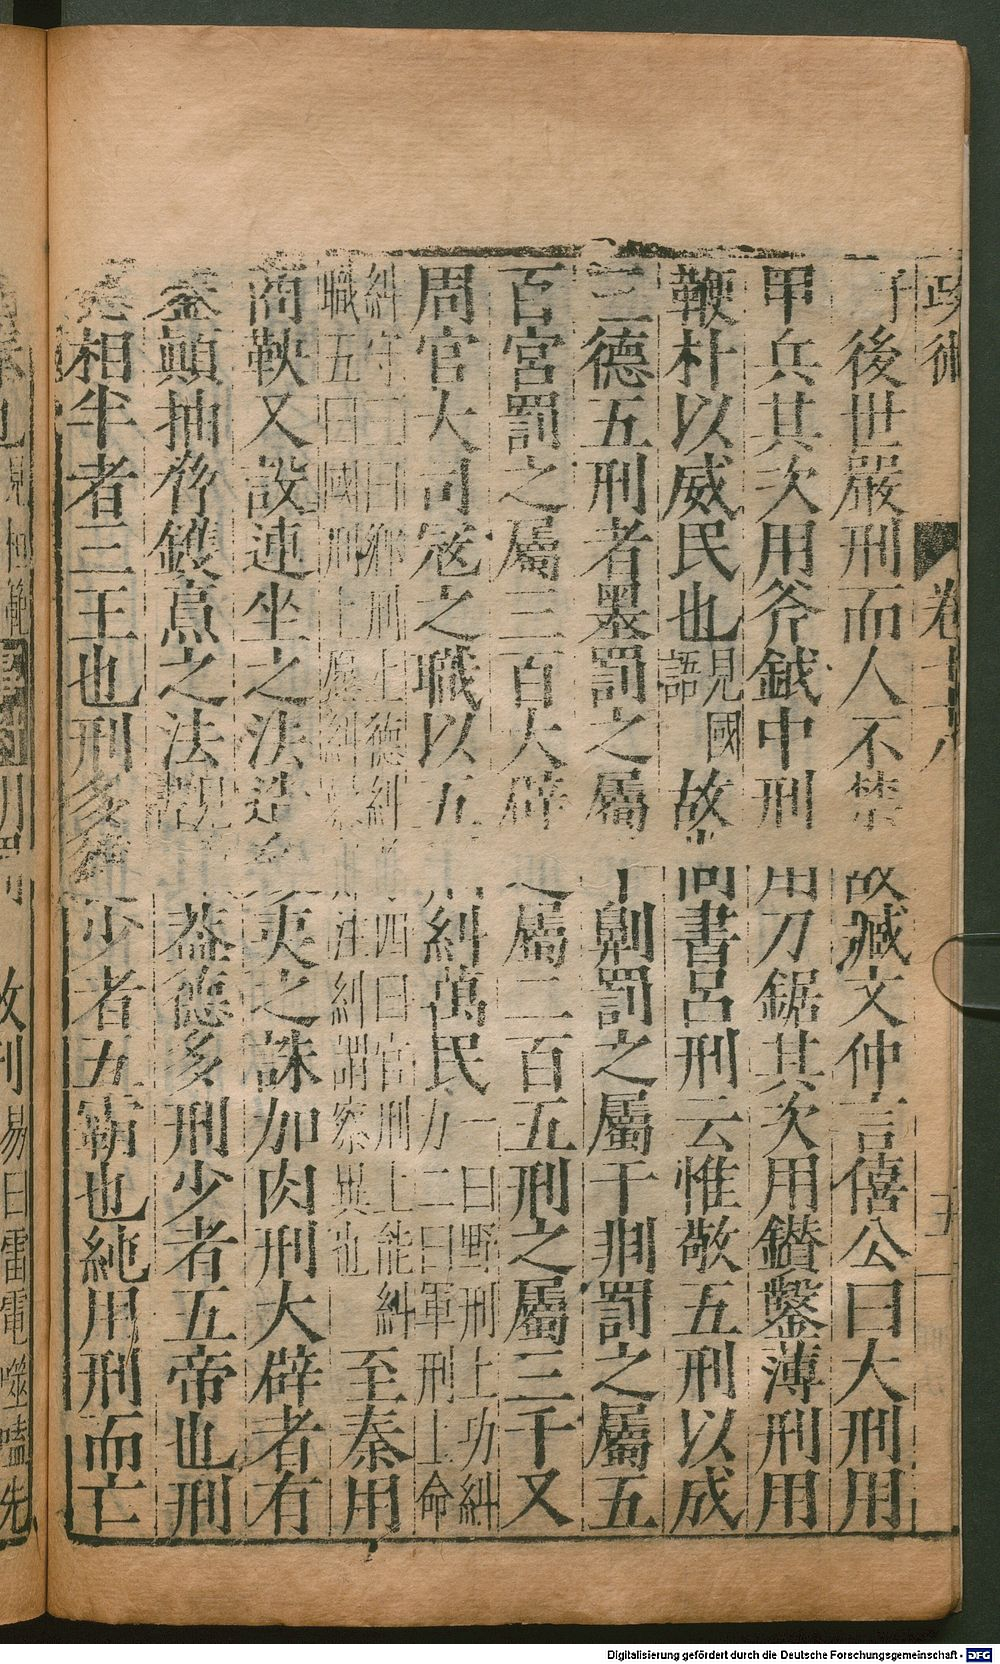 政術 卷十八
後世嚴刑而人不禁故臧文仲言僖公曰大刑用
甲兵其次用斧鉞中刑用刀鋸其次用鑚鑿薄刑用
鞭朴以威民也見國語故尚書呂刑云惟敬五刑以成
三德五刑者墨罰之屬千劓罰之屬千剕罰之屬五
百宮罰之屬三百大辟之屬二百五刑之屬三千又
周官大司寇之職以五刑糾萬民一曰野刑上功糾力二曰軍刑上命
糾守三曰鄉刑上德糾四曰官刑上能糾職五曰國刑上愿糾糾謂察異也至秦用
商鞅又設連坐之法造參夷之誅加肉刑大辟者有
鑿顛抽脅鑊烹之法觀蓋德多刑少者五帝也刑
德相半者三王也刑多德少者五霸也純用刑而亡
易曰雷電噬嗑先
Digitalisierung gefördert durch die Deutsche Forschungsgemeinschaft - DFG